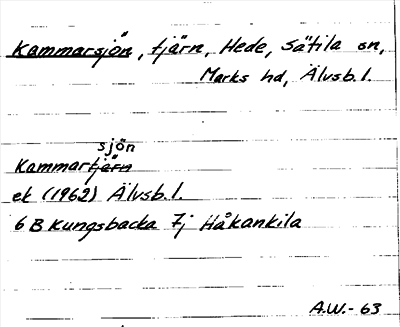 Kammarsjön, tjärn, Hede, Sätila sn,
Marks hd, Älvsb. l.
sjön
Kammartjärn
ek (1962) Älvsb. l.
6 B Kungsbacka 7j Håkankila
A.W.- 63